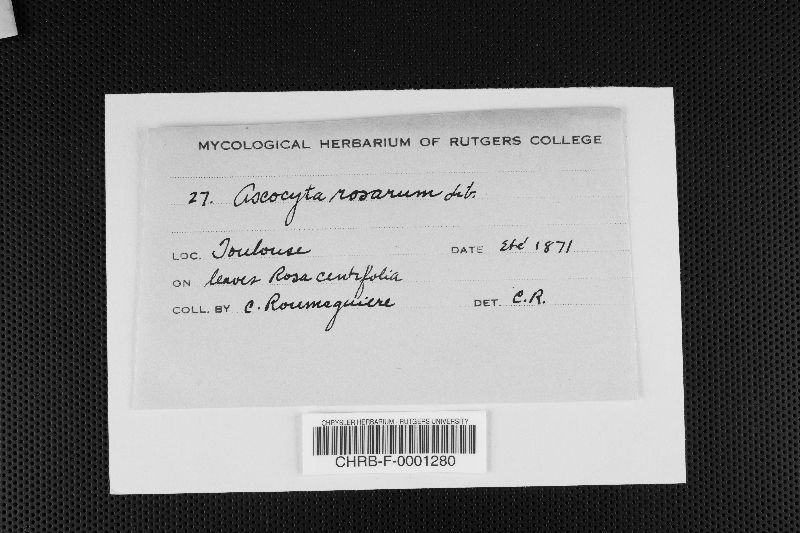 MYCOLOGICAL HERBARIUM OF RUTGERS COLLEGE
27. Ascocyta rosarum Lib.
LOC. Toulouse DATE Eté 1871
ON leaves Rosa centifolia
COLL. BY C. Roumeguiere DET. C.R.
CHRYSLER HERBARIUM - RUTGERS UNIVERSITY
CHRB-F-0001280